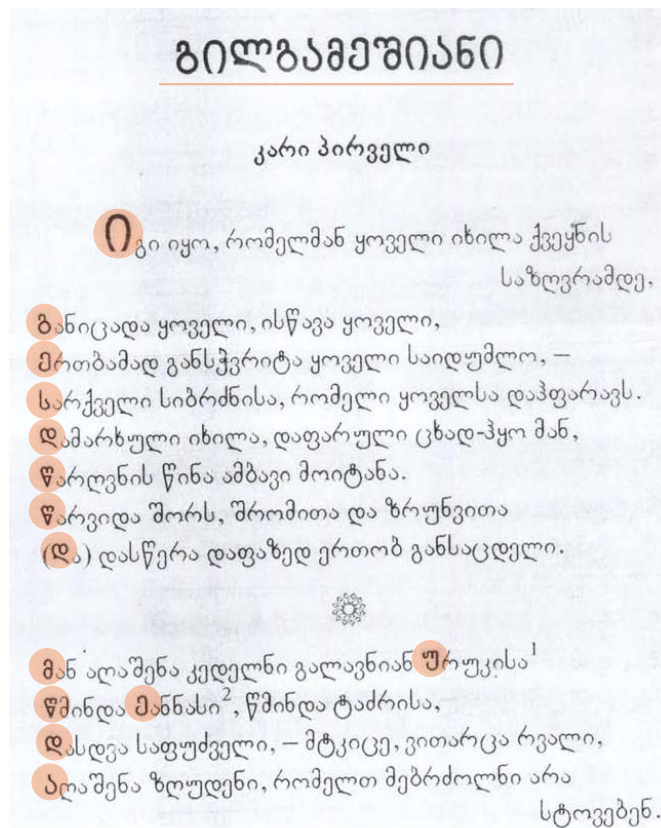 გილგამეშიანი
კარი პირველი
იგი იყო, რომელმან ყოველი იხილა ქვეყნის
საზღვრამდე,
განიცადა ყოველი, ისწავა ყოველი,
ერთბამად განსჭვრიტა ყოველი საიდუმლო, —
სარქველი სიბრძნისა, რომელი ყოველსა დაჰფარავს.
დამარხული იხილა, დაფარული ცხად-ჰყო მან,
წარღვნის წინა ამბავი მოიტანა.
წარვიდა შორს, შრომითა და ზრუნვითა
(და) დასწერა დაფაზედ ერთობ განსაცდელი.
მან აღაშენა კედელნი გალავნიან ურუკისა1
წმინდა ეანნასი2, წმინდა ტაძრისა,
დასდვა საფუძველი, — მტკიცე, ვითარცა რვალი,
აღაშენა ზღუდენი, რომელთ მებრძოლნი არა
სტოვებენ.